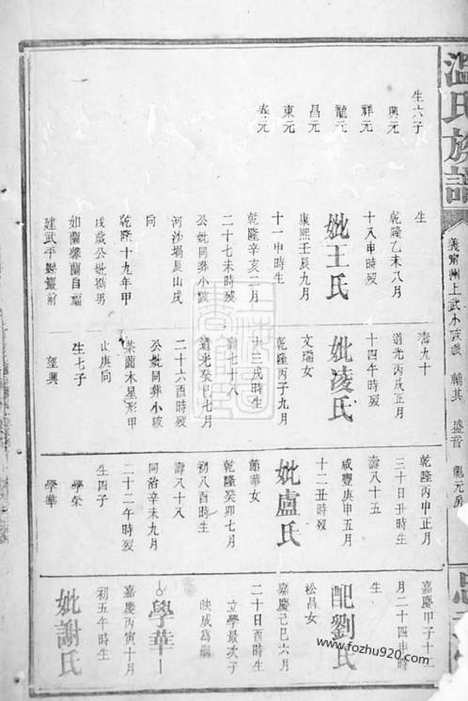 溫氏族譜
義甯州上武小茂設 輔其 盛音 興元房
生
乾隆乙未八月
十八申時歿
妣王氏
康熙壬辰九月
十一申時生
乾隆辛亥二月
二十七未時歿
公妣同葬小坡
河沙塲艮山戌
同
乾隆十九年甲
戌歲公妣携男
如蘭馨蘭自福
建武平縣遷前
生六子
興元
祥元
龍元
昌元
東元
泰元
壽九十
道光丙戌正月
十四午時歿
妣凌氏
文瑞女
乾隆丙子九月
廿三戌時生
壽七十八
道光癸巳七月
二十六酉時歿
公妣同葬小坡
茶蘭木星形甲
山庚同
生七子
望興
乾隆丙申正月
三十日丑時生
壽八十五
咸豐庚申五月
十二丑時歿
妣盧氏
節華女
乾隆癸卯七月
初八酉時生
壽八十八
同治辛未九月
二十二午時歿
生四子
學榮
學華
嘉慶甲子十二
月二十四申時
生
配劉氏
松昌女
嘉慶己巳六月
二十日酉時生
立學景次子
映成為嗣
學華
嘉慶丙寅十月
初五午時生
妣謝氏
www.fozhu920.com